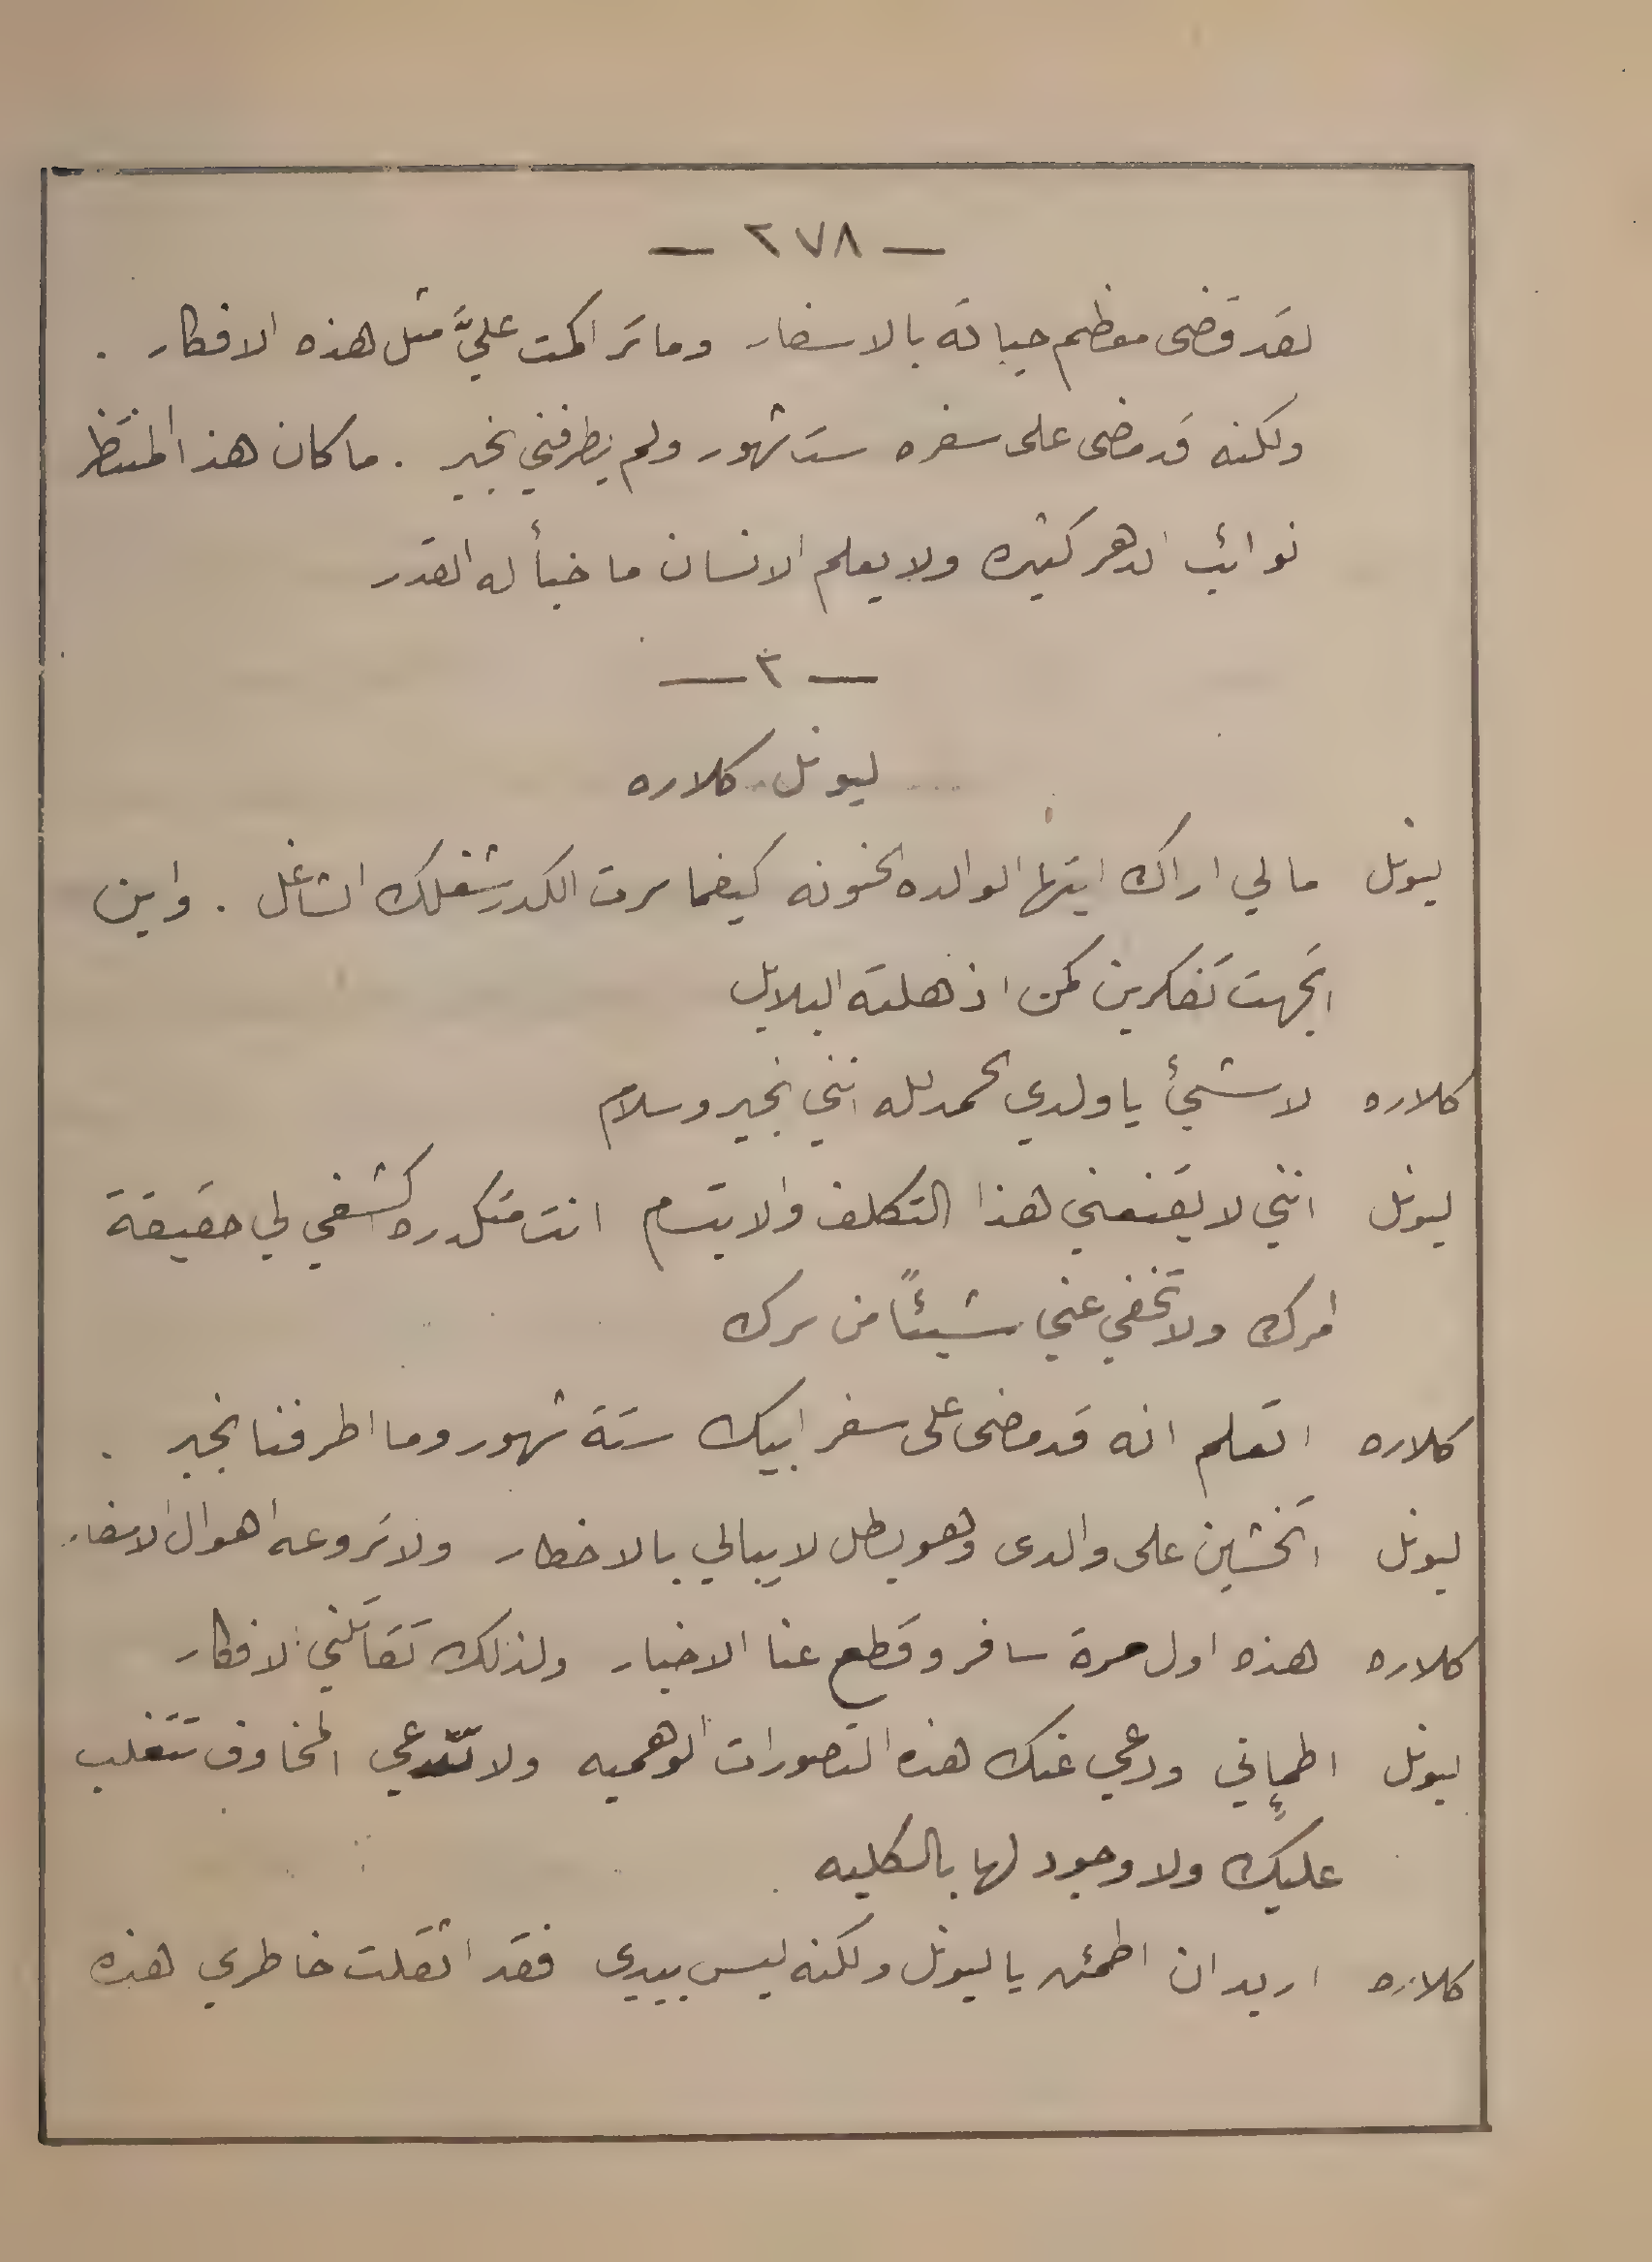 — ٢٧٨ —
لقد قضى معظم حياته بالاسفار وما تراكمت عليَّ مثل هذه الافكار .
ولكنه قد مضى على سفره ست شهور ولم يطرفني بخبر . ما كان هذا المنتظر
نوائب الدهر كثيره ولا يعلم الانسان ما خبأ له القدر
— ٢ —
ليونل كلاره
ليونل ما لي اراك ايتها الوالده الحنونه كيفما سرت الكدر شغلك الشاغل . واين
اتجهت تفكرين كمن اذهلته البلابل
كلاره لا شيئ يا ولدي الحمد لله انني بخير وسلام
ليونل انني لا يقنعني هذا التكلف والابتسام انت متكدره اكشفي لي حقيقة
امرك ولا تخفي عني شيئاً من سرك
كلاره اتعلم انه قد مضى على سفر ابيك ستة شهور وما اطرفنا بخبر .
ليونل اتخشين على والدى وهو بطل لا يبالي بالاخطار ولا تروعه اهوال الاسفار
كلاره هذه اول مرة سافر وقطع عنا الاخبار ولذلك تقاتلني الافكار
ليونل اطمإني ودعي عنك هذه التصورات الوهميه ولا تدعي المخاوف تتغلب
عليك ولا وجود لها بالكليه
كلاره اريد ان اطمئن يا ليونل ولكنه ليس بيدي فقد اثقلت خاطري هذه